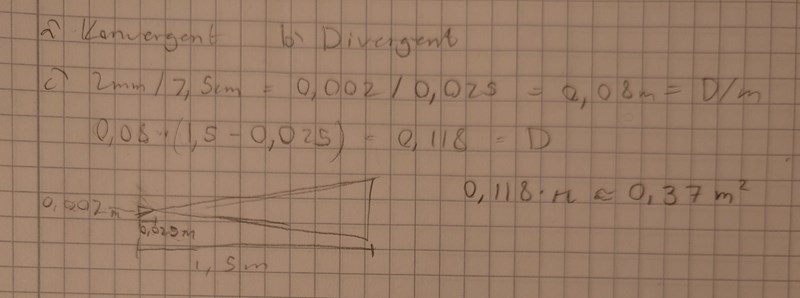 a) Konvergent b) Divergent
c) 2mm / 2,5cm = 0,002 / 0,025 = 0,08m = D/m
0,08 · (1,5 - 0,025) = 0,118 = D
0,118 · π ≈ 0,37 m²
0,002m
0,025m
1,5m